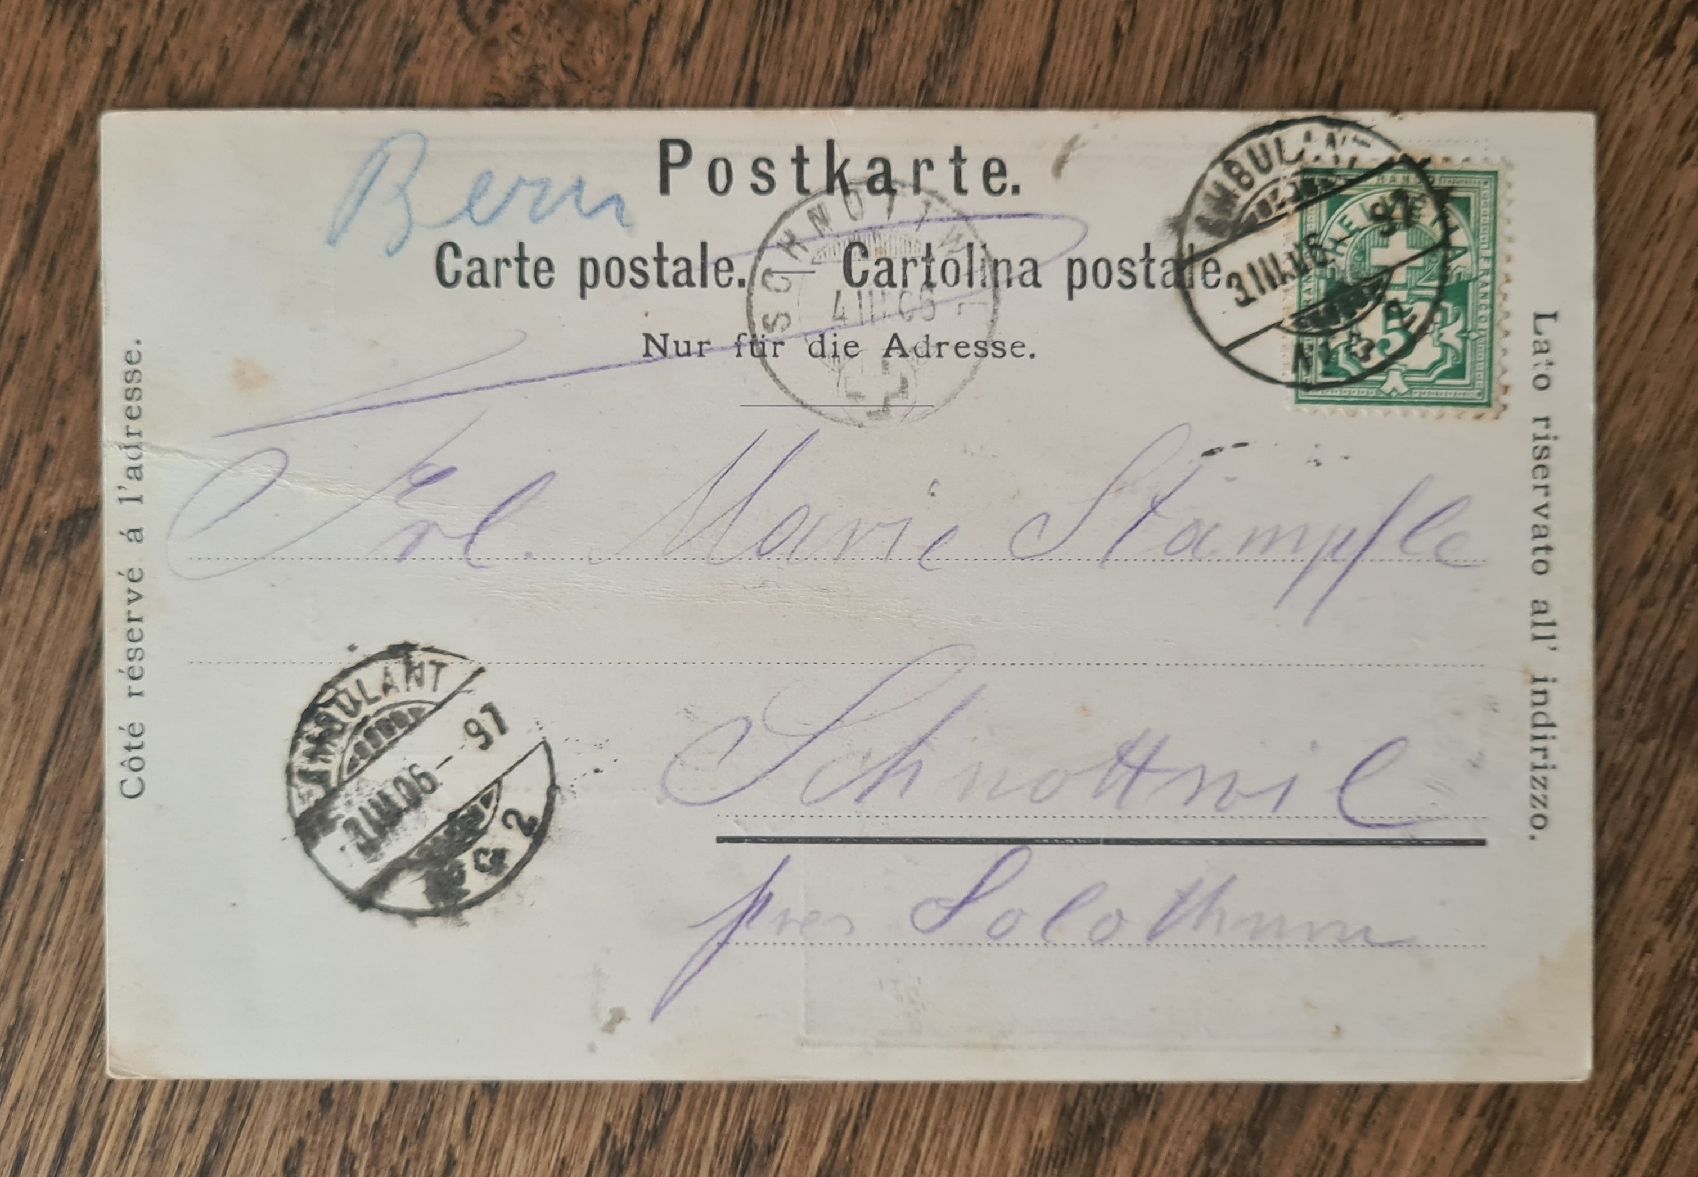 Bern
Postkarte.
Carte postale. — Cartolina postale.
Nur für die Adresse.
Côté réservé á l'adresse.
Lato riservato all' indirizzo.
AMBULANT
3.III.06 - 97
No 2
FRANCO
HELVETIA
5
SCHNOTTW
4.III.06
Frl. Marie Stämpfle
Schnottwil
pres Solothurn
AMBULANT
3.III.06 - 97
No 2